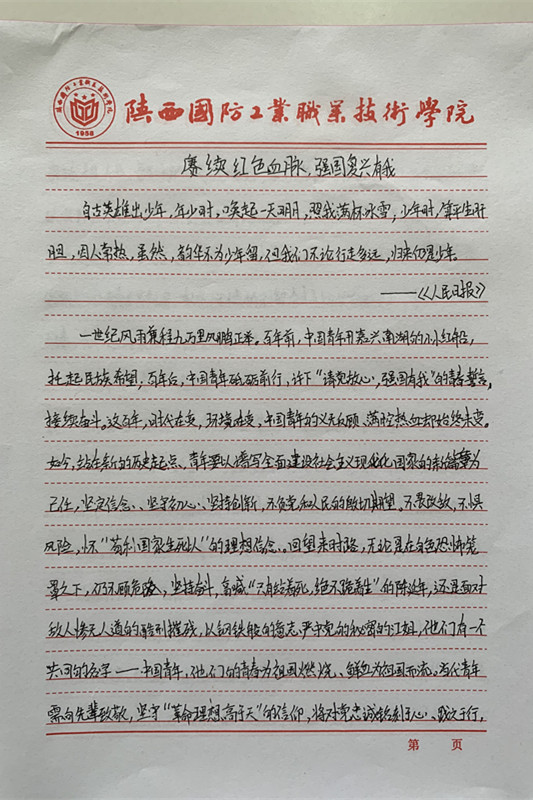 陕西国防工业职业技术学院
1958
陕西國防工業職業技術學院
赓续红色血脉,强国复兴有我
自古英雄出少年,年少时,唤起一天明月,照我满怀冰雪,少年时,肝胆,因人常热,虽然,韵华不为少年留,但我们不论行走多远,归来仍是少年
——《人民日报》
一世纪风雨兼程九万里风鹏正举。百年前,中国青年用嘉兴南湖的小小红船,
托起民族希望,百年后,中国青年砥砺前行,许下“请党放心,强国有我”的青春誓言,
接续奋斗。这百年,时代在变,环境在变,中国青年的义无反顾、满腔热血却始终未变。
如今,站在新的历史起点、青年要以谱写全面建设社会主义现代化国家的新篇章为
己任,坚定信念、坚守初心、坚持创新,不负党和人民的殷切期望。不畏改敌,不惧
风险,怀“苟利国家生死以”的理想信念。回望来时路,无论是在白色恐怖笼
罩之下,仍不顾危险,坚持奋斗,高喊“只有站着死,绝不跪着生”的陈延年,还是面对
敌人惨无人道的酷刑摧残,以钢铁般的意志,严守党的秘密的江姐,他们有一个
共同的名字——中国青年,他们的青春为祖国燃烧、鲜血为祖国而流。当代青年
需向先辈致敬,坚守“革命理想高于天”的信仰,将对党忠诚铭刻于心、践之于行,
第 页